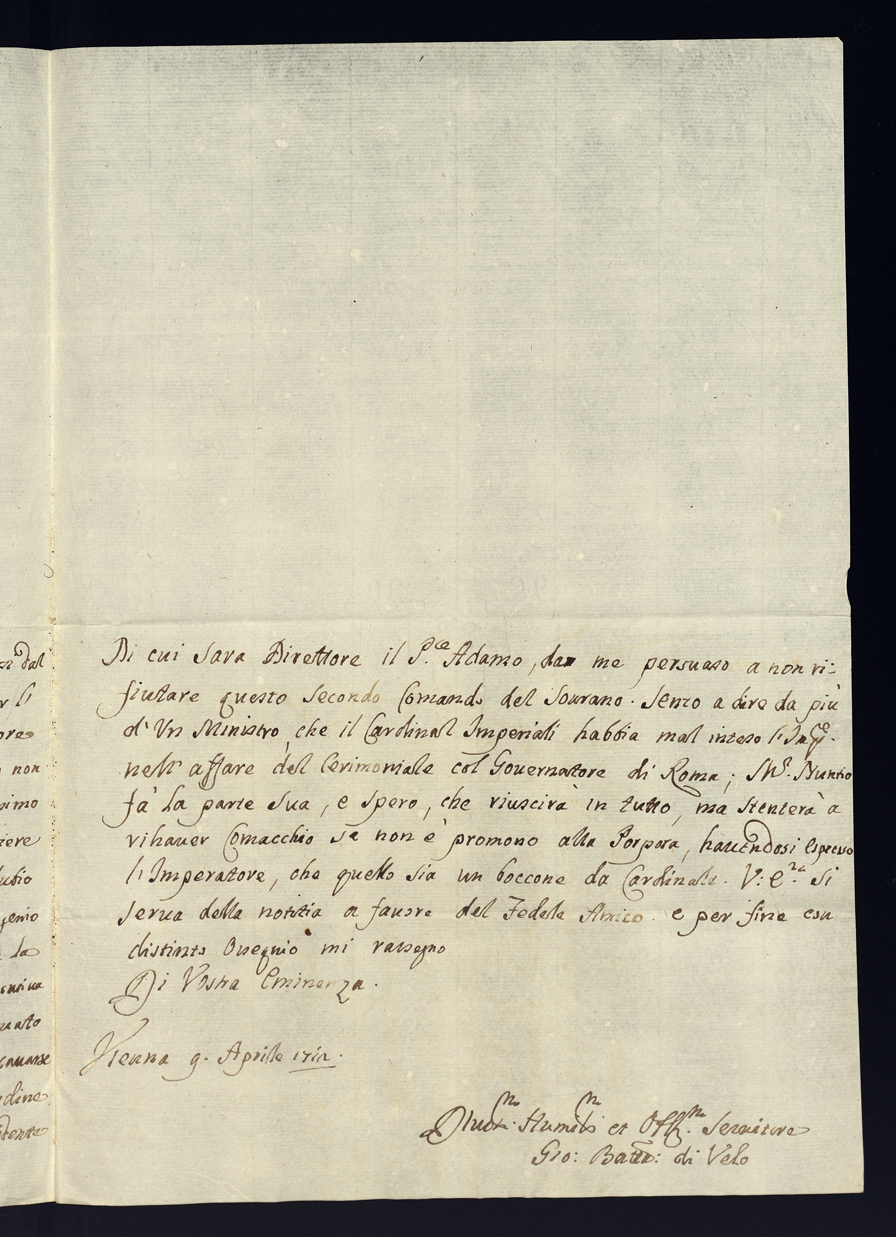 Di cui sara Direttore il P.ce Adamo, da me persuaso a non ri:
fiutare questo secondo Comando del Sourano. Sento a dire da più
d'Un Ministro, che il Cardinal Imperiali habbia mal inteso
nell'affare del Cerimoniale col Gouernatore di Roma; Nuntio
fà la parte sua, e spero, che riuscirà in tutto, ma stenterà a
rihauer Comacchio se non è promono alla Porpora, hauendosi espresso
l'Imperatore, che quello sia un boccone da Cardinale. V: E.za si
serua della notitia a fauore del Fedele Amico. e per fine con
distinto Ossequio mi rassegno
Di Vostra Eminenza.
Vienna 9. Aprile 1712.
Humil. et Obl. Seruitore
Gio: Batta: di Velo
zi dal
r li
non
simo
iere
ubio
genio
La
uato
dine